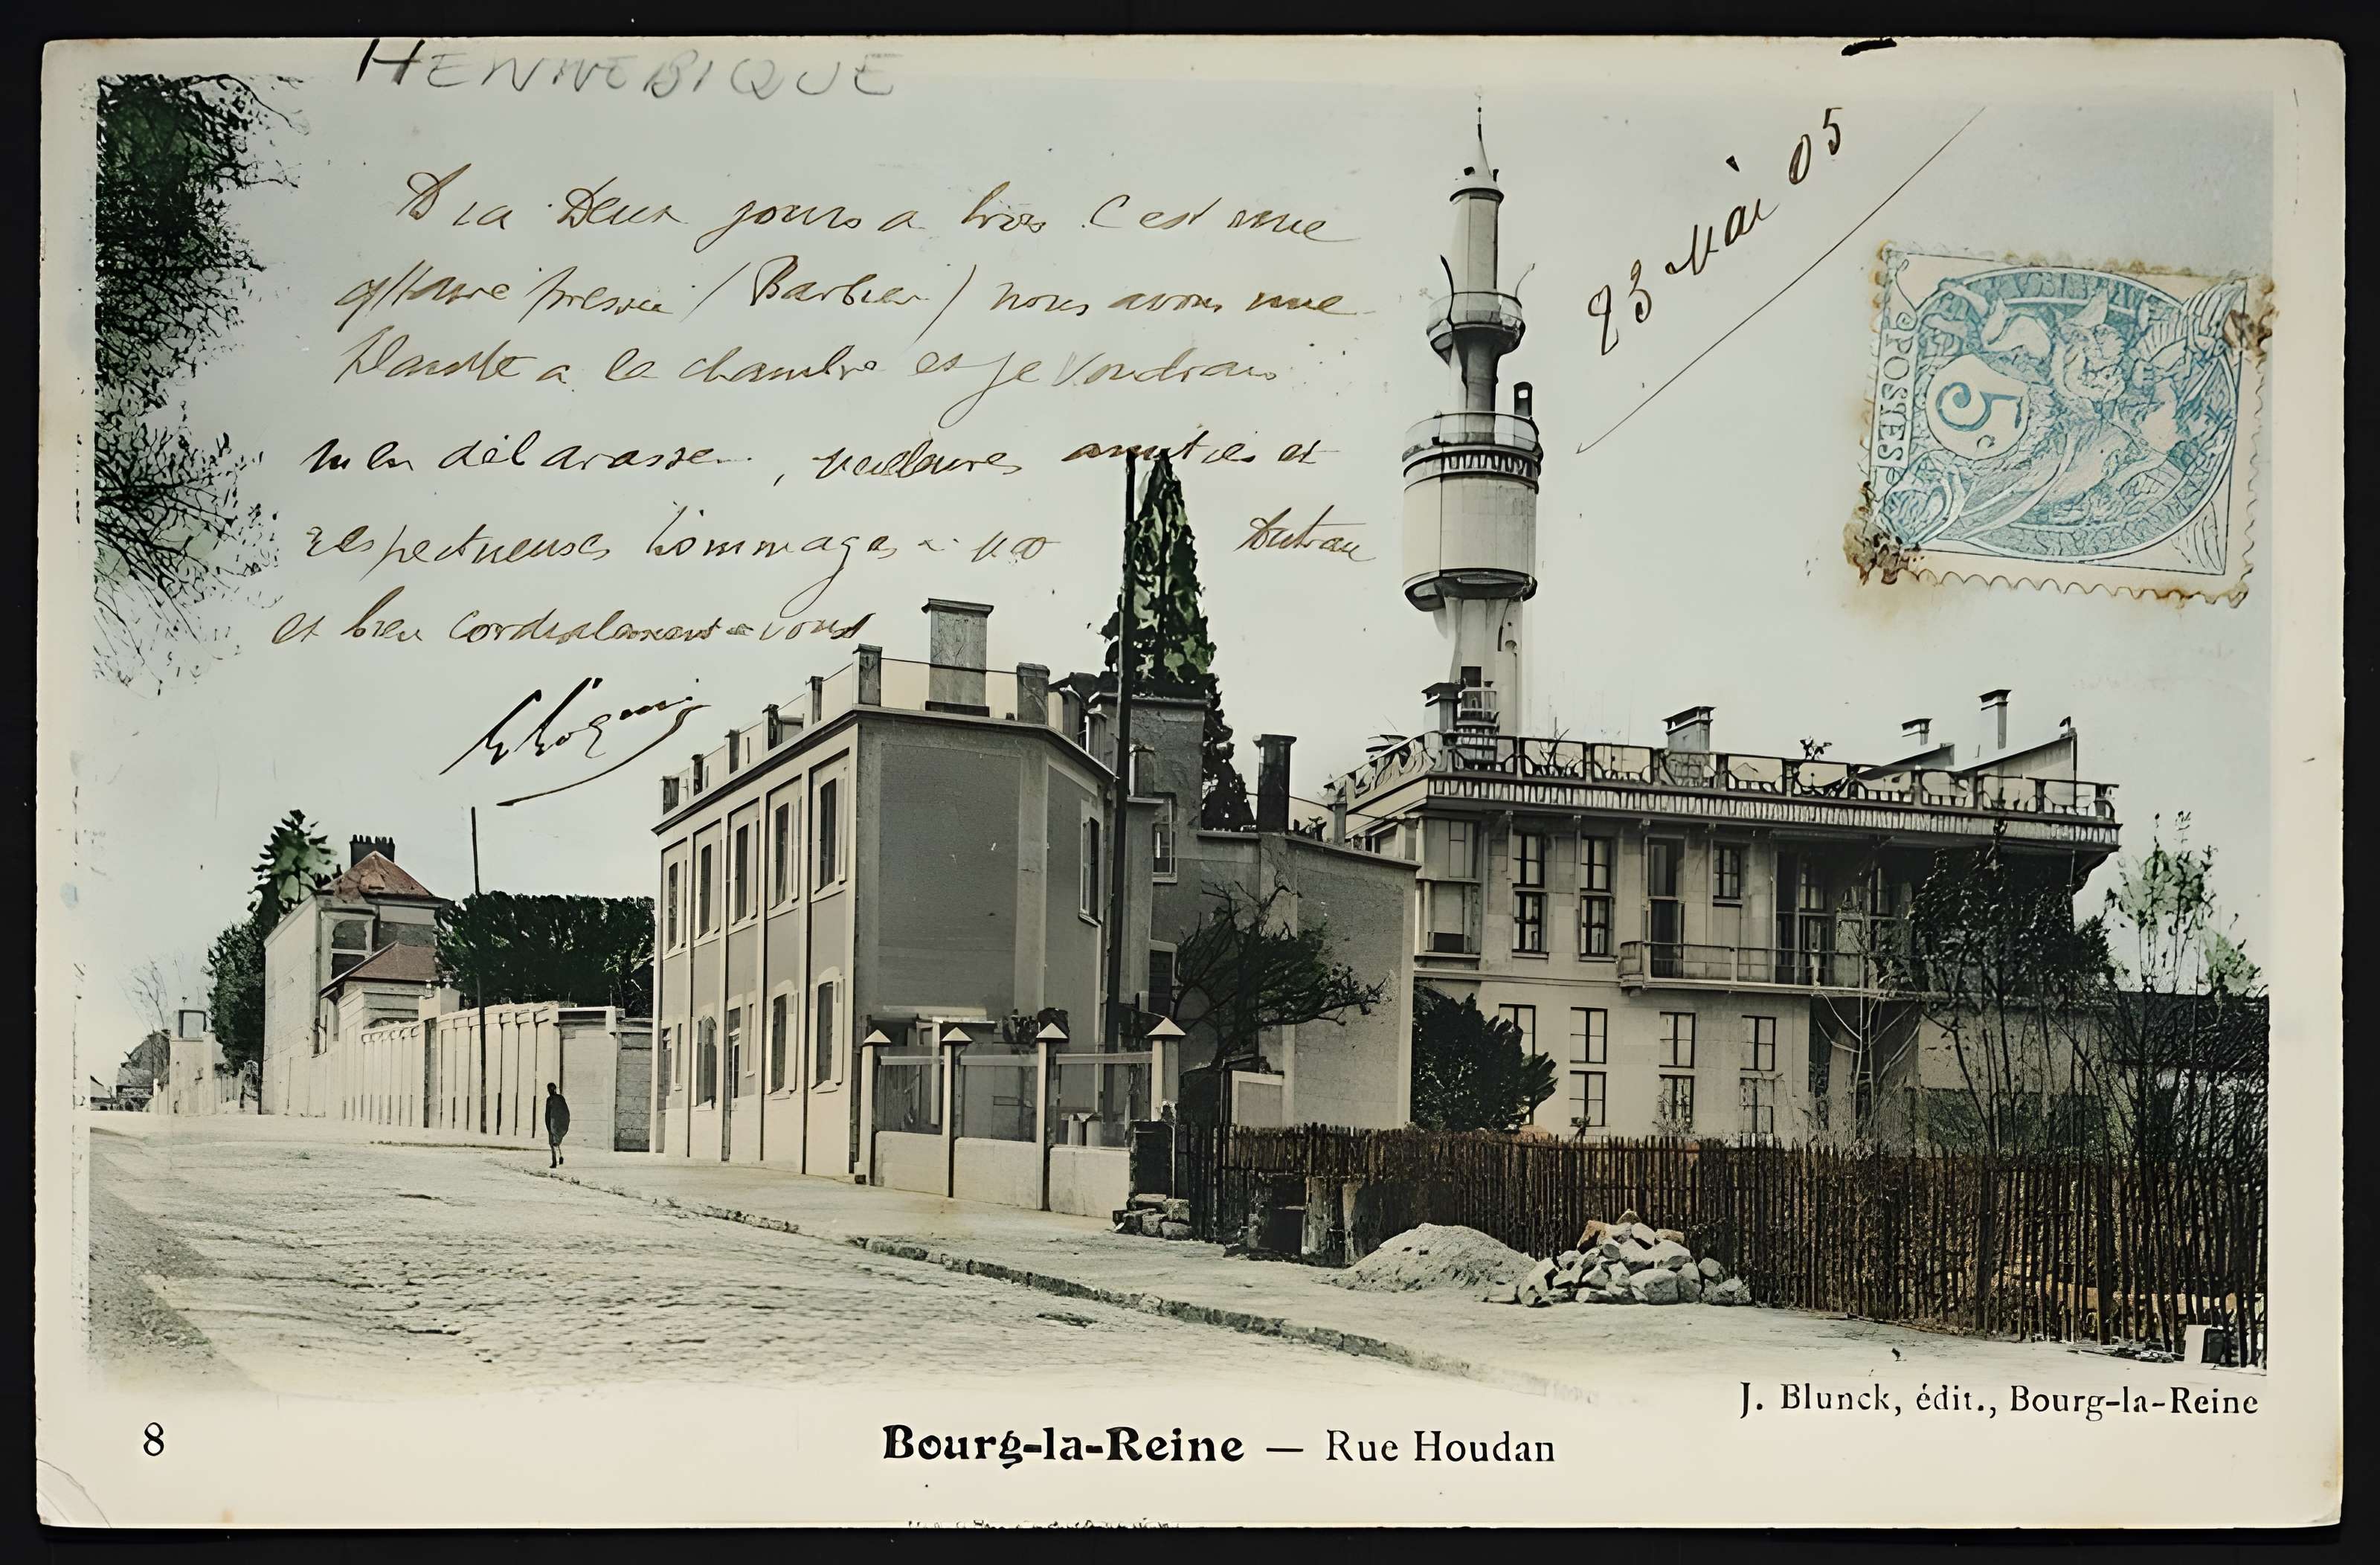 HENNEBIQUE
23 mai 05
Deux jours a trois c'est une
presser (Barbier) nous avons une
a la chambre et je voudrais
m'en débarasser, meilleures amitiés et
respectueuses hommages a
et bien cordialement a vous
POSTES
5c
J. Blunck, édit., Bourg-la-Reine
8
Bourg-la-Reine — Rue Houdan